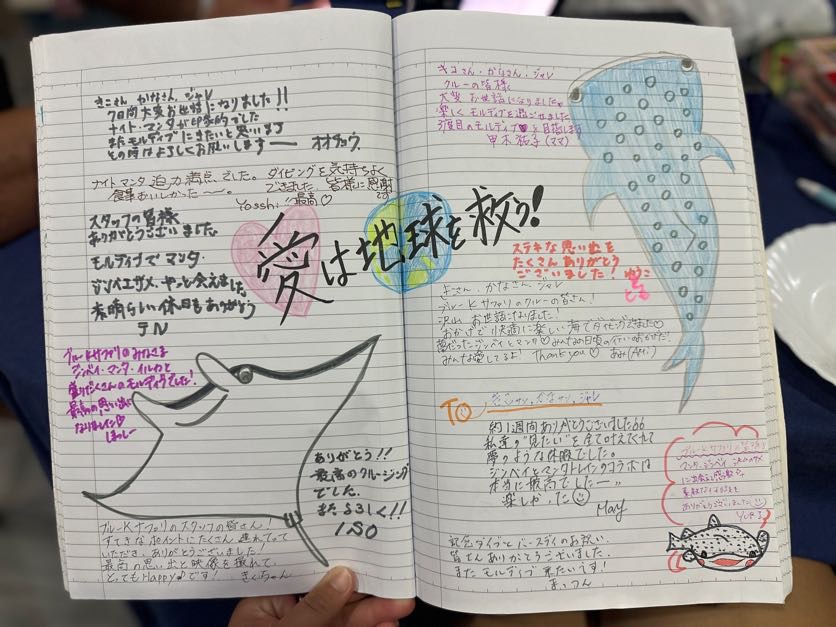 きこさん かなさん、ジャレ
7日間大変お世話になりました!!
ナイト・マンタが印象的でした
またモルディブにきたいと思います
その時はよろしくお願いします
ナイトマンタ 迫力満点でした。ダイビングを気持ちよく
食事おいしかった〜。できました 皆様に感謝です
Yosshi 最高♡
スタッフの皆様
ありがとうございました
モルディブで マンタ
ジンベイザメ、やっと会えました
素晴らしい休日をありがとう
テル
愛は地球を救う!
ブルーKサファリのみなさま
ジンベイ・マンタ・イルカと
盛りだくさんのモルディブでした!
最高の思い出に
なりました♡
ほっしー
ありがとう!!
最高のクルージング
でした。
またよろしく!!
ISO
ブルーKサファリのスタッフの皆さん!
すてきなポイントにたくさん連れてって
いただき、ありがとうございました!
最高の思い出と映像を撮れて、
とってもHappy♪です! きくちゃん
キコさん、かなさん、ジャレ
クルーの皆様
大変お世話になりました。
楽しくモルディブを過ごせました
3度目のモルディブを目指します
(ママ)
ステキな思い出を
たくさんありがとう
ございました! ゆうこ
きこさん、かなさん、ジャレ
ブルーKサファリのクルーの皆さん!
沢山お世話になりました!
おかげで快適に楽しい海でダイビングできました♡
夢だったジンベイとマンタ♡みんなの日頃の行いのおかげだ!
みんな愛してるよ! Thank you♡ あみ(Ami)
To きこサン、かなサン、ジャレ
約1週間ありがとうございました
私達の"見たい"を全て叶えてくれて
夢のような休暇でした。
ジンベイとマンタトレインのコラボは
本当に最高でしたー。
楽しかった
Mary
ブルーKサファリの皆様
マンタ、ジンベイ、沢山のサメ
に出会え感激です。
ありがとうございました
YUKI
記念ダイブとバースデイのお祝い、
皆さんありがとうございました。
またモルディブ来たいです!
まっつん